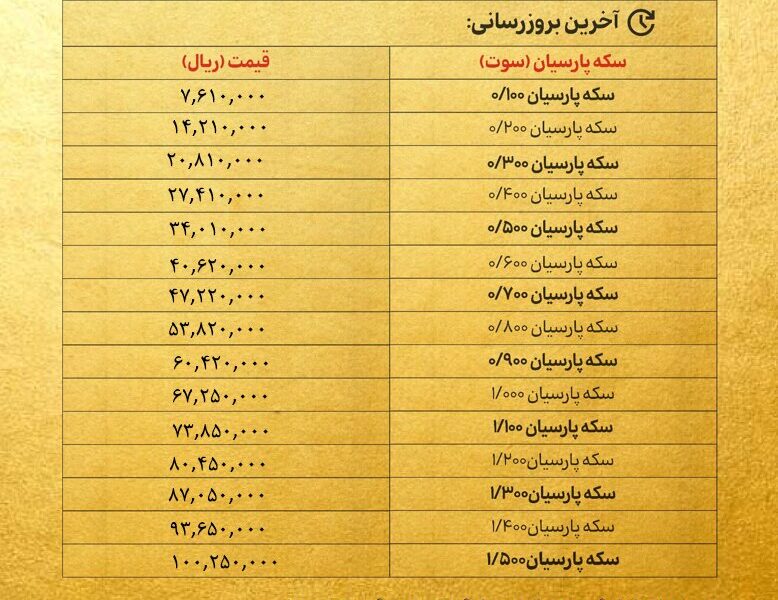 آخرین بروزرسانی:
سکه پارسیان (سوت) قیمت (ریال)
سکه پارسیان ۰/۱۰۰ ۷,۶۱۰,۰۰۰
سکه پارسیان ۰/۲۰۰ ۱۴,۲۱۰,۰۰۰
سکه پارسیان ۰/۳۰۰ ۲۰,۸۱۰,۰۰۰
سکه پارسیان ۰/۴۰۰ ۲۷,۴۱۰,۰۰۰
سکه پارسیان ۰/۵۰۰ ۳۴,۰۱۰,۰۰۰
سکه پارسیان ۰/۶۰۰ ۴۰,۶۲۰,۰۰۰
سکه پارسیان ۰/۷۰۰ ۴۷,۲۲۰,۰۰۰
سکه پارسیان ۰/۸۰۰ ۵۳,۸۲۰,۰۰۰
سکه پارسیان ۰/۹۰۰ ۶۰,۴۲۰,۰۰۰
سکه پارسیان ۱/۰۰۰ ۶۷,۲۵۰,۰۰۰
سکه پارسیان ۱/۱۰۰ ۷۳,۸۵۰,۰۰۰
سکه پارسیان۱/۲۰۰ ۸۰,۴۵۰,۰۰۰
سکه پارسیان۱/۳۰۰ ۸۷,۰۵۰,۰۰۰
سکه پارسیان۱/۴۰۰ ۹۳,۶۵۰,۰۰۰
سکه پارسیان۱/۵۰۰ ۱۰۰,۲۵۰,۰۰۰